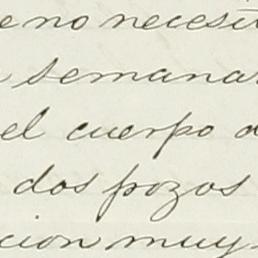 eno necesit
semanar
el cuerpo d
dos pozos
cion muy